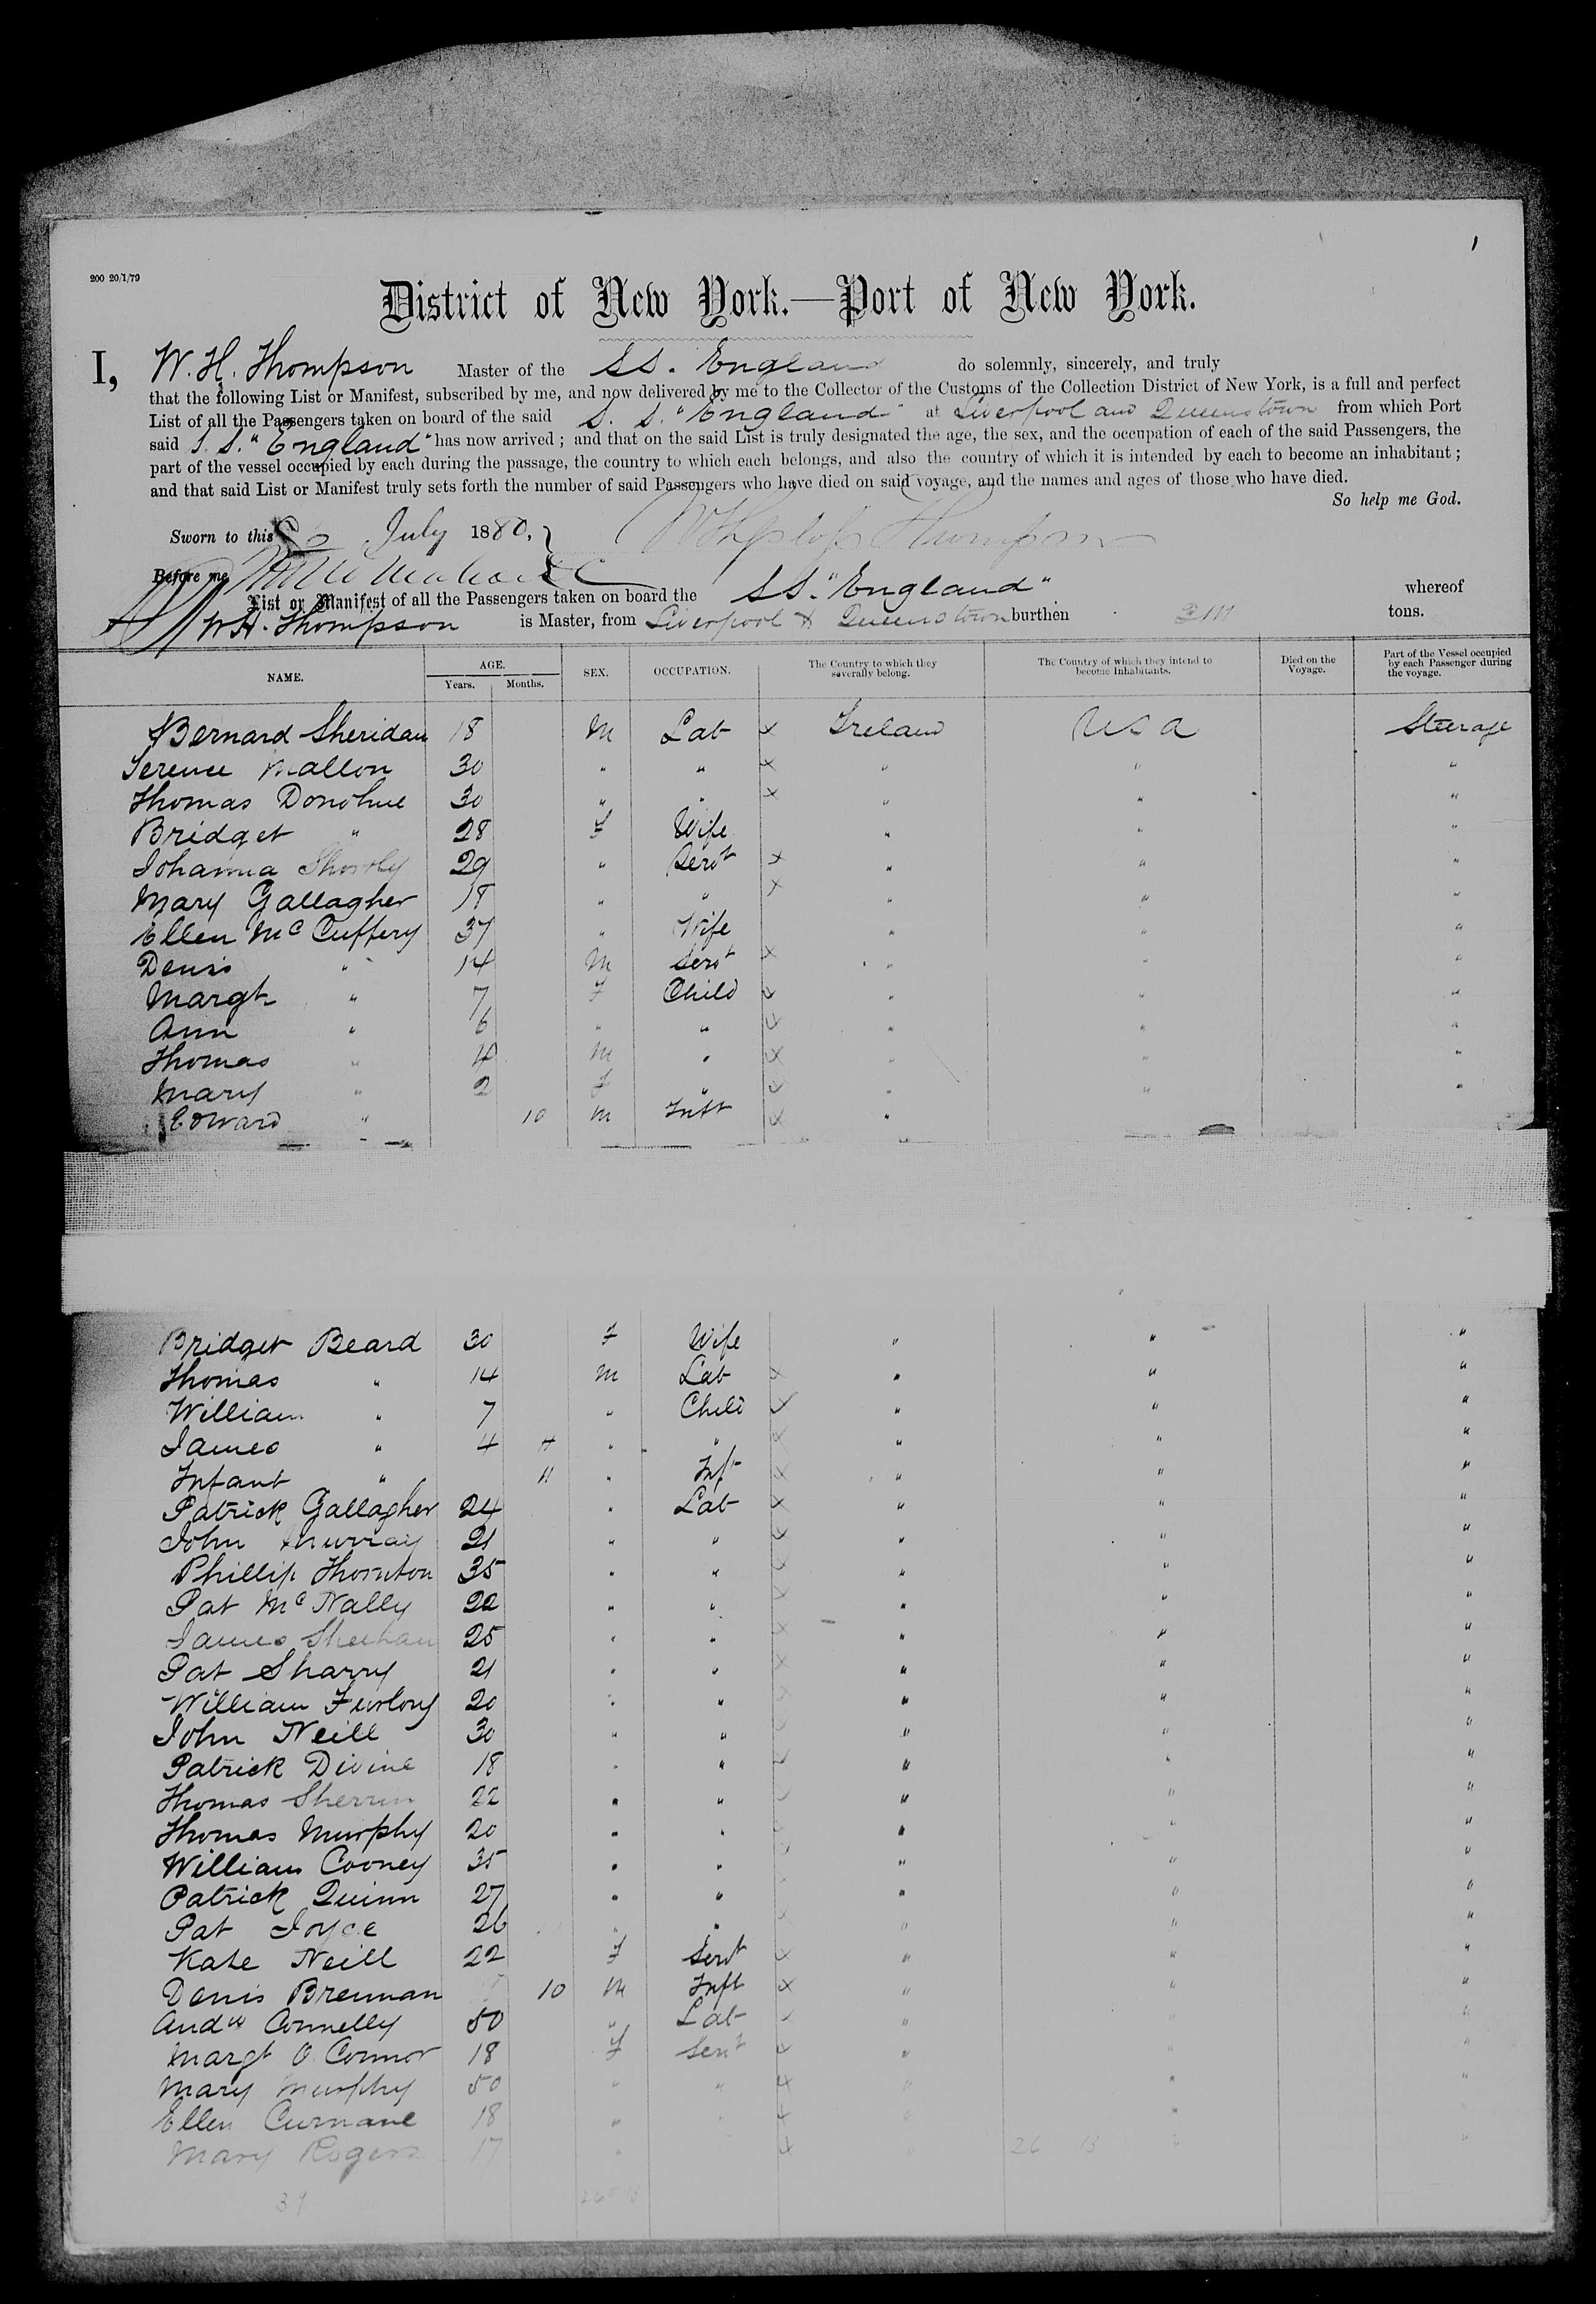 1
200 20/1/79
District of New York.—Port of New York.
I, W. H. Thompson Master of the SS. England do solemnly, sincerely, and truly
that the following List or Manifest, subscribed by me, and now delivered by me to the Collector of the Customs of the Collection District of New York, is a full and perfect
List of all the Passengers taken on board of the said S. S. "England" at Liverpool and Queenstown from which Port
said S. S. "England" has now arrived; and that on the said List is truly designated the age, the sex, and the occupation of each of the said Passengers, the
part of the vessel occupied by each during the passage, the country to which each belongs, and also the country of which it is intended by each to become an inhabitant;
and that said List or Manifest truly sets forth the number of said Passengers who have died on said voyage, and the names and ages of those who have died.
So help me God.
Sworn to this July 1880, Thompson
Before me
List or Manifest of all the Passengers taken on board the SS. "England" whereof
W H. Thompson is Master, from Liverpool & Queenstown burthen tons.
NAME. AGE. Years. Months. SEX. OCCUPATION. The Country to which they severally belong. The Country of which they intend to become Inhabitants. Died on the Voyage. Part of the Vessel occupied by each Passenger during the voyage.
Bernard Sheridan 18 M Lab x Ireland USA Steerage
Terence Mallon 30 " " x " " "
Thomas Donohue 30 " " x " " "
Bridget " 28 F Wife " " "
Johanna 29 " Servt x " " "
Mary Gallagher 18 " " x " " "
Ellen McCuffery 37 " Wife " " "
Denis " 14 M Servt x " " "
Margt " 7 F Child x " " "
Ann " 6 " " x " " "
Thomas " 4 M " x " " "
Mary " 2 F " x " " "
Edward " 10 M Inft x "
Bridget Beard 30 F Wife " " "
Thomas " 14 M Lab x " " "
William " 7 " Child x " " "
James " 4 " " x " " "
Infant " 11 " Inft x " " "
Patrick Gallagher 24 " Lab x " " "
John Murray 21 " " x " " "
Phillip Thornton 35 " " x " " "
Pat McNally 22 " " x " " "
James Sheehan 25 " " x " " "
Pat Sharry 21 " " x " " "
William Furlong 20 " " x " " "
John Neill 30 " " x " " "
Patrick Divine 18 " " x " " "
Thomas Sherrin 22 " " x " " "
Thomas Murphy 20 " " x " " "
William Cooney 35 " " x " " "
Patrick Quinn 27 " " x " " "
Pat Joyce 26 " " x " " "
Kate Neill 22 F Servt x " " "
Denis Brennan 10 M Inft x " " "
Andw Connelly 50 " Lab x " " "
Margt O Connor 18 F Servt x " " "
Mary Murphy 50 " " x " " "
Ellen Curnane 18 " " x " " "
Mary Rogers 17 " x 26 13 " "
39